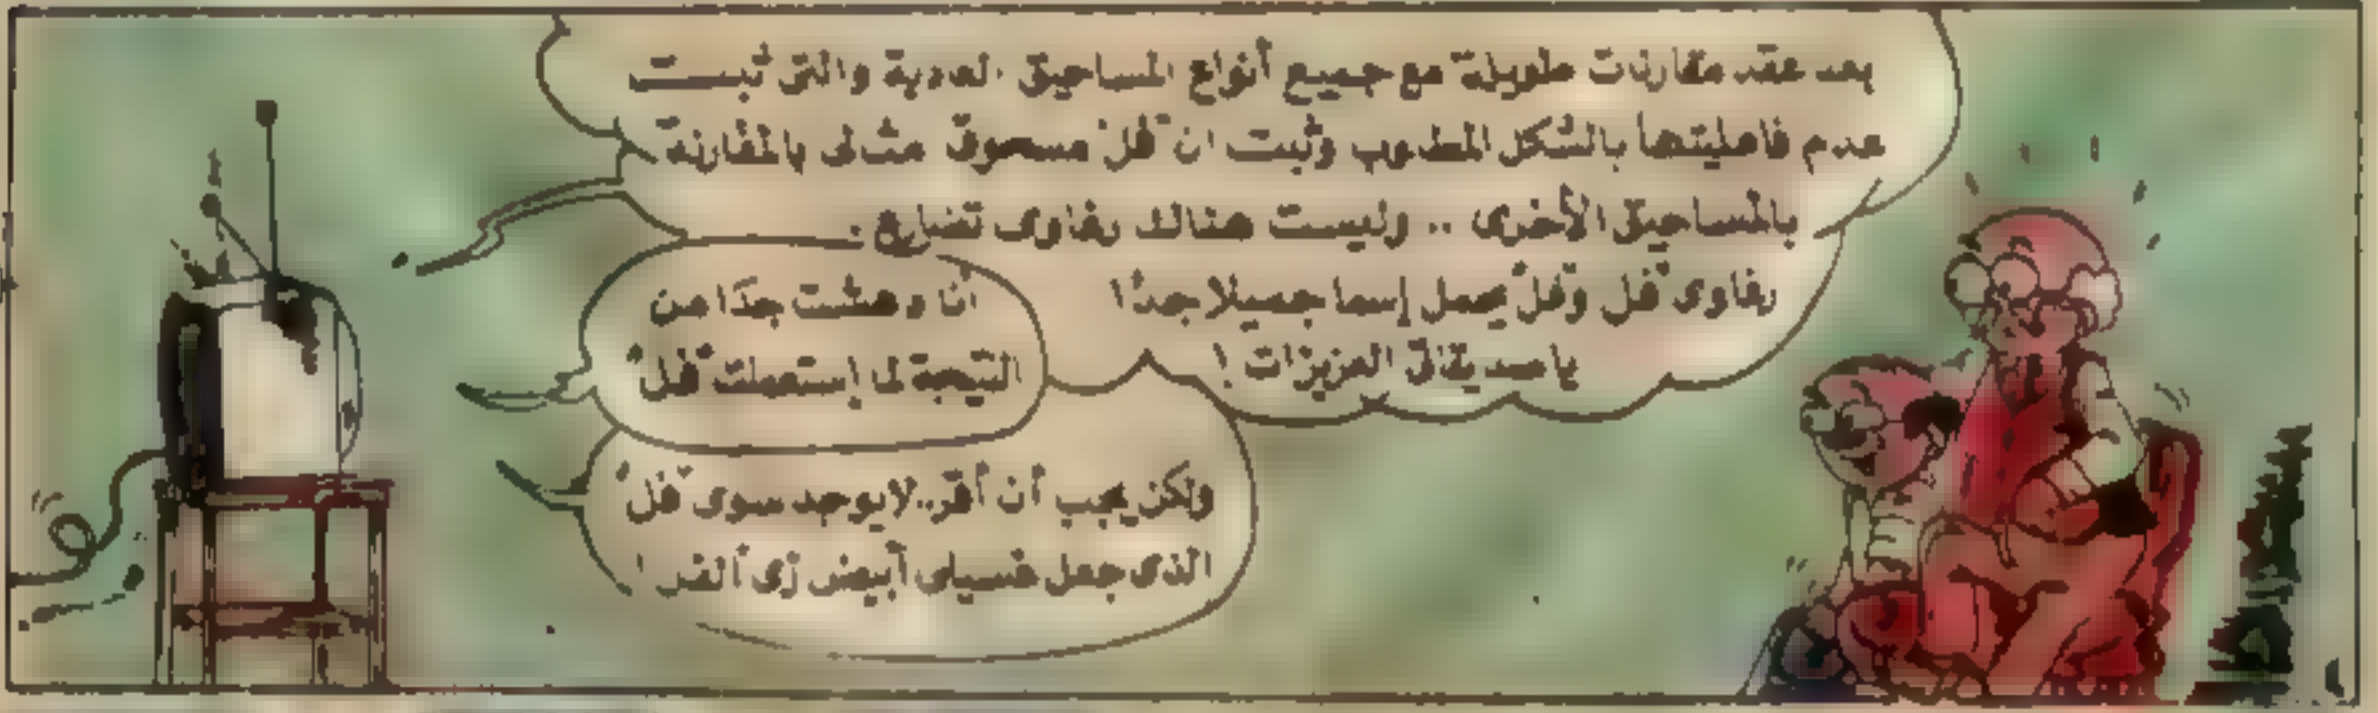 بعد عقد مقارنات طويلة مع جميع أنواع المساحيق العادية والتى ثبت
عدم فاعليتها بالشكل المطلوب وثبت ان "فل" مسحوق مثالى بالمقارنة
بالمساحيق الأخرى .. وليست هنالك رغاوى تضارع
رغاوى فل وفل يحمل إسما جميلا جدا
ياصديقاتى العزيزات !
أنا دهشت جدا من
النتيجة لما إستعملت "فل"
ولكن يجب أن أقر.. لايوجد سوى "فل"
الذى جعل غسيلى أبيض زى الفل !